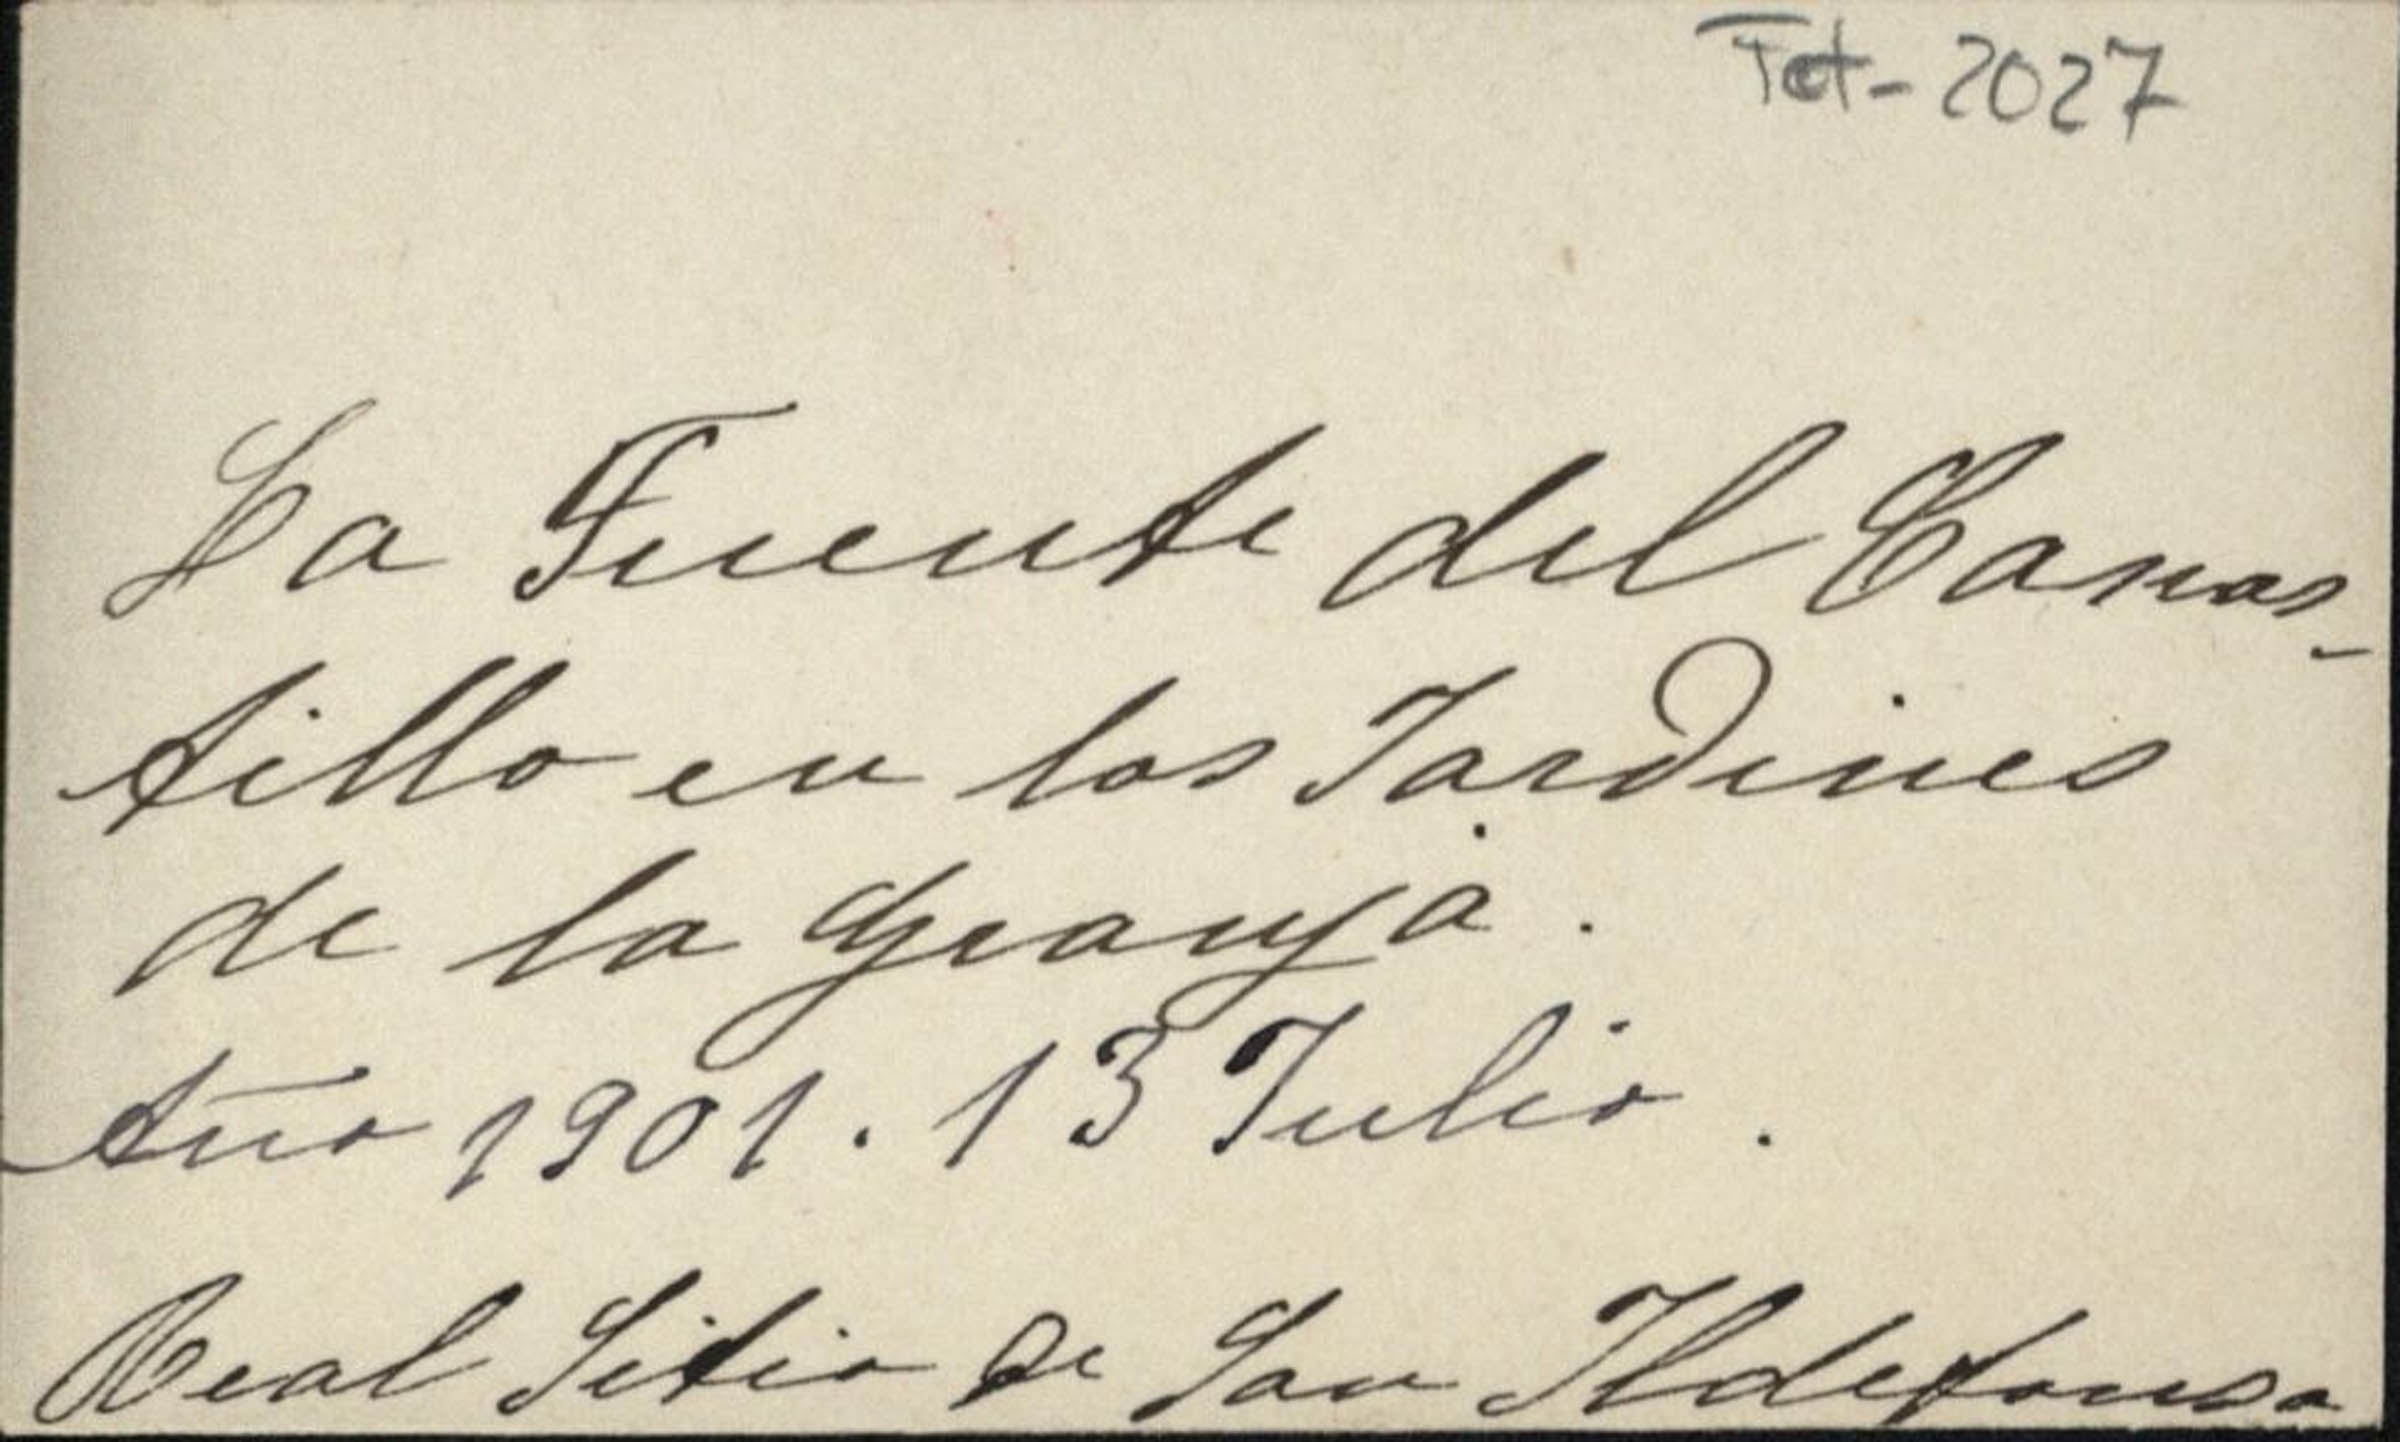 Fot-2027
La Fuente del Canas-
tillo en los Jardines
de la Granja.
Año 1901. 13 Julio.
Real Sitio de San Ildefonso